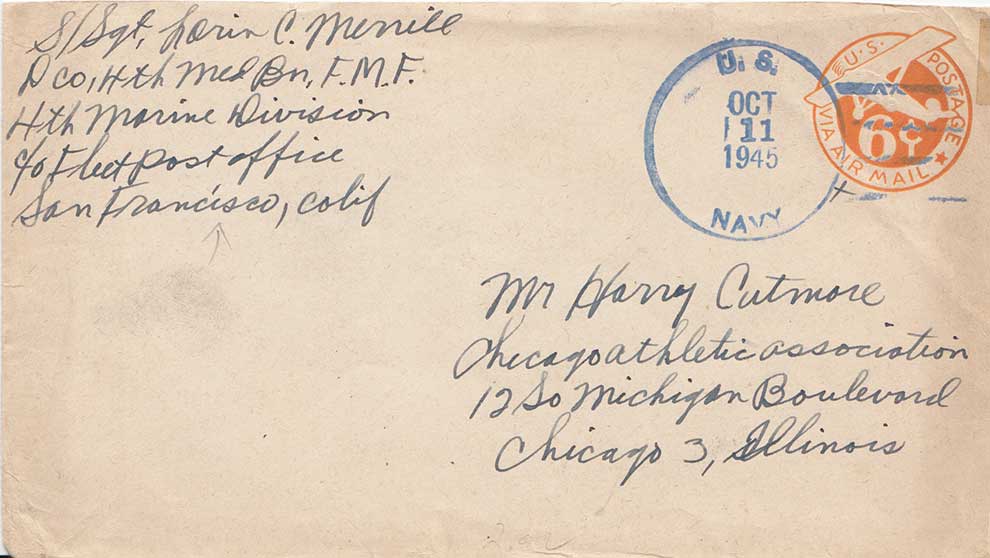 S/Sgt. Lorin C. Merrill
D co, 4th Med Bn, F.M.F.
4th Marine Division
c/o Fleet post office
San Francisco, Colif
U.S.
OCT
11
1945
NAVY
U.S. POSTAGE
6¢
VIA AIR MAIL
Mr Harry Cutmore
Chicago athletic association
12 So Michigan Boulevard
Chicago 3, Illinois